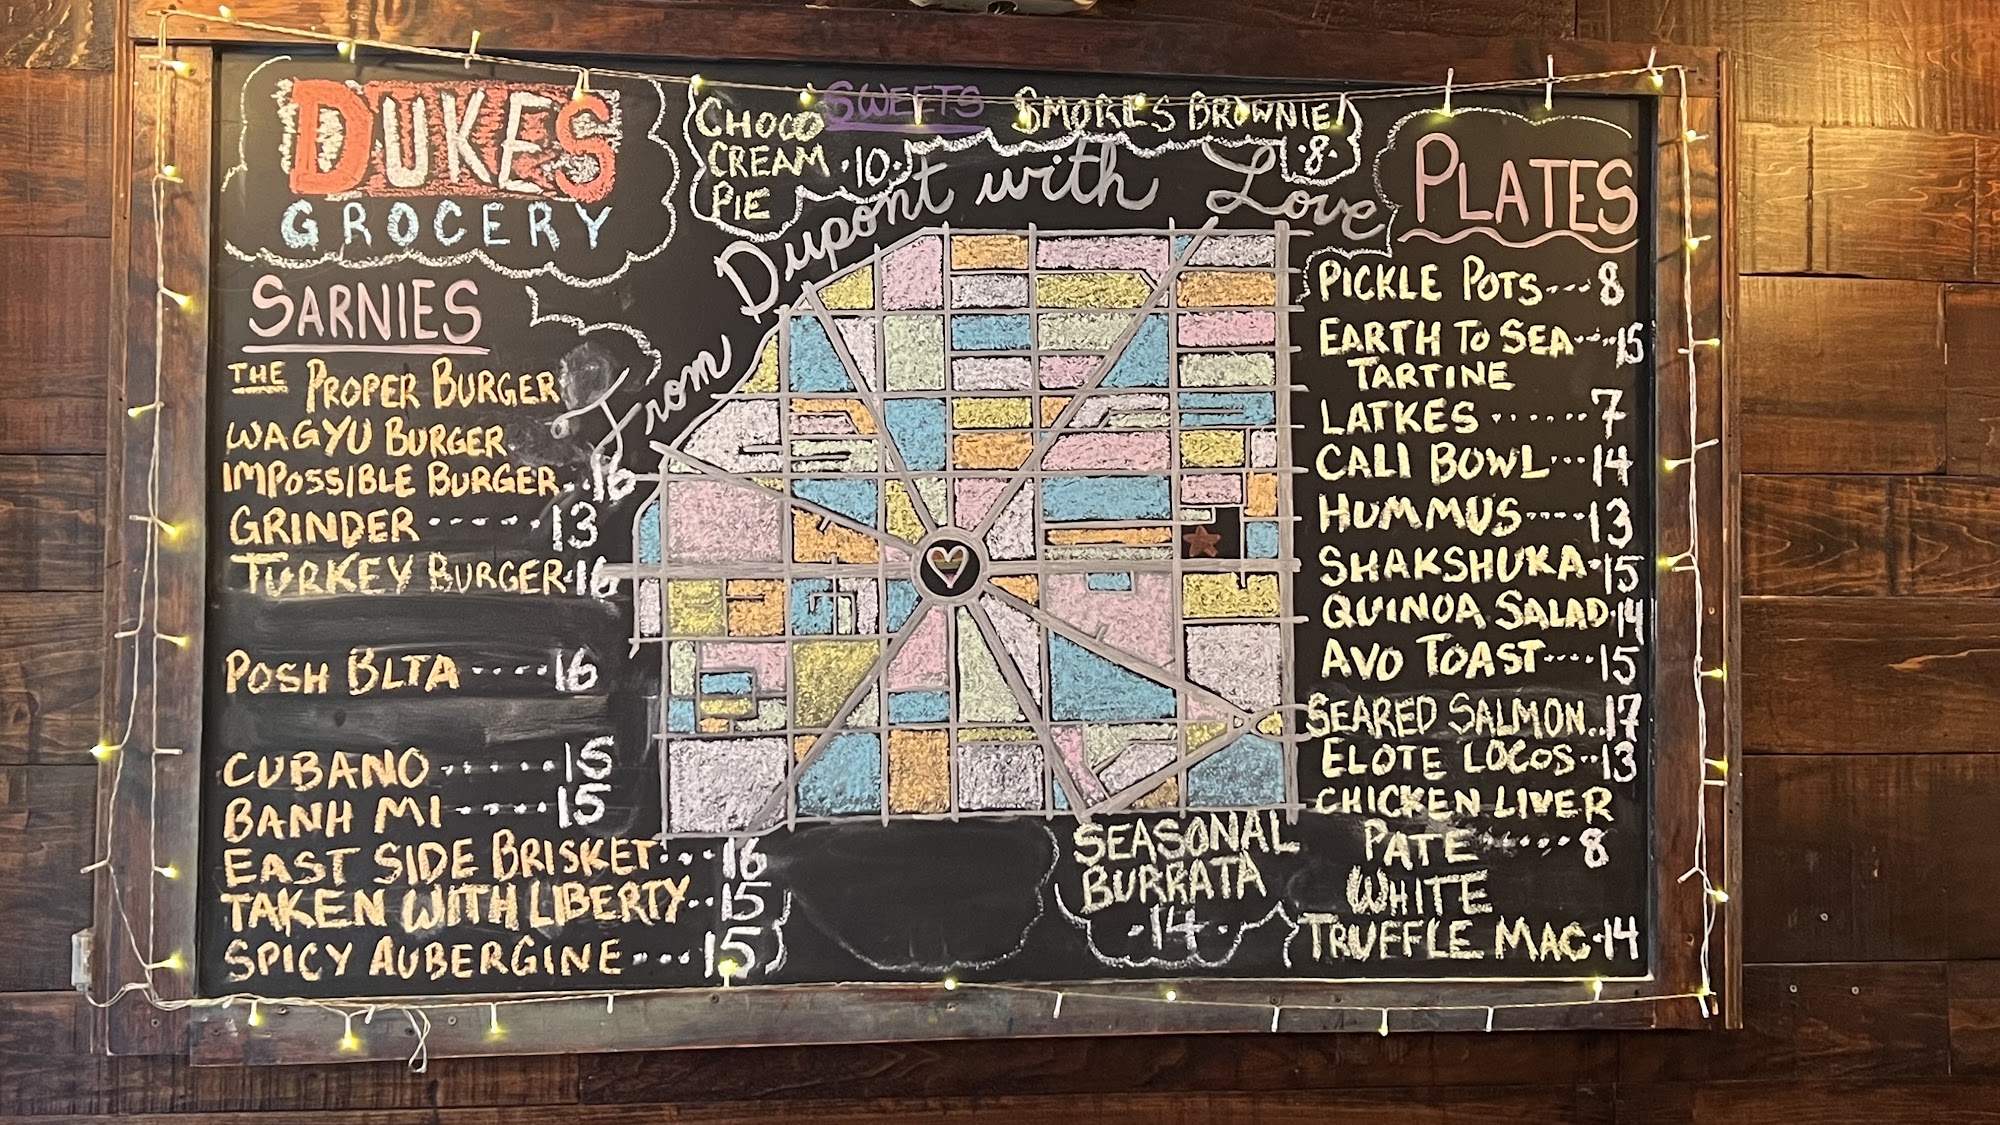 DUKES
GROCERY
SARNIES
THE PROPER BURGER
WAGYU BURGER
IMPOSSIBLE BURGER...16
GRINDER ------13
TURKEY BURGER.16
POSH BLTA ----16
CUBANO ------15
BANH MI -----15
EAST SIDE BRISKET...16
TAKEN WITH LIBERTY..15
SPICY AUBERGINE ---15
SWEETS
CHOCO
CREAM .10.
PIE
SMORES BROWNIE!
.8.
From Dupont with Love
SEASONAL
BURRATA
.14.
PLATES
PICKLE POTS---8
EARTH TO SEA----15
TARTINE
LATKES ......7
CALI BOWL...14
HUMMUS----13
SHAKSHUKA.15
QUINOA SALAD.14
AVO TOAST----15
SEARED SALMON..17
ELOTE LOCOS..13
CHICKEN LIVER
PATE -----8
WHITE
TRUFFLE MAC.14